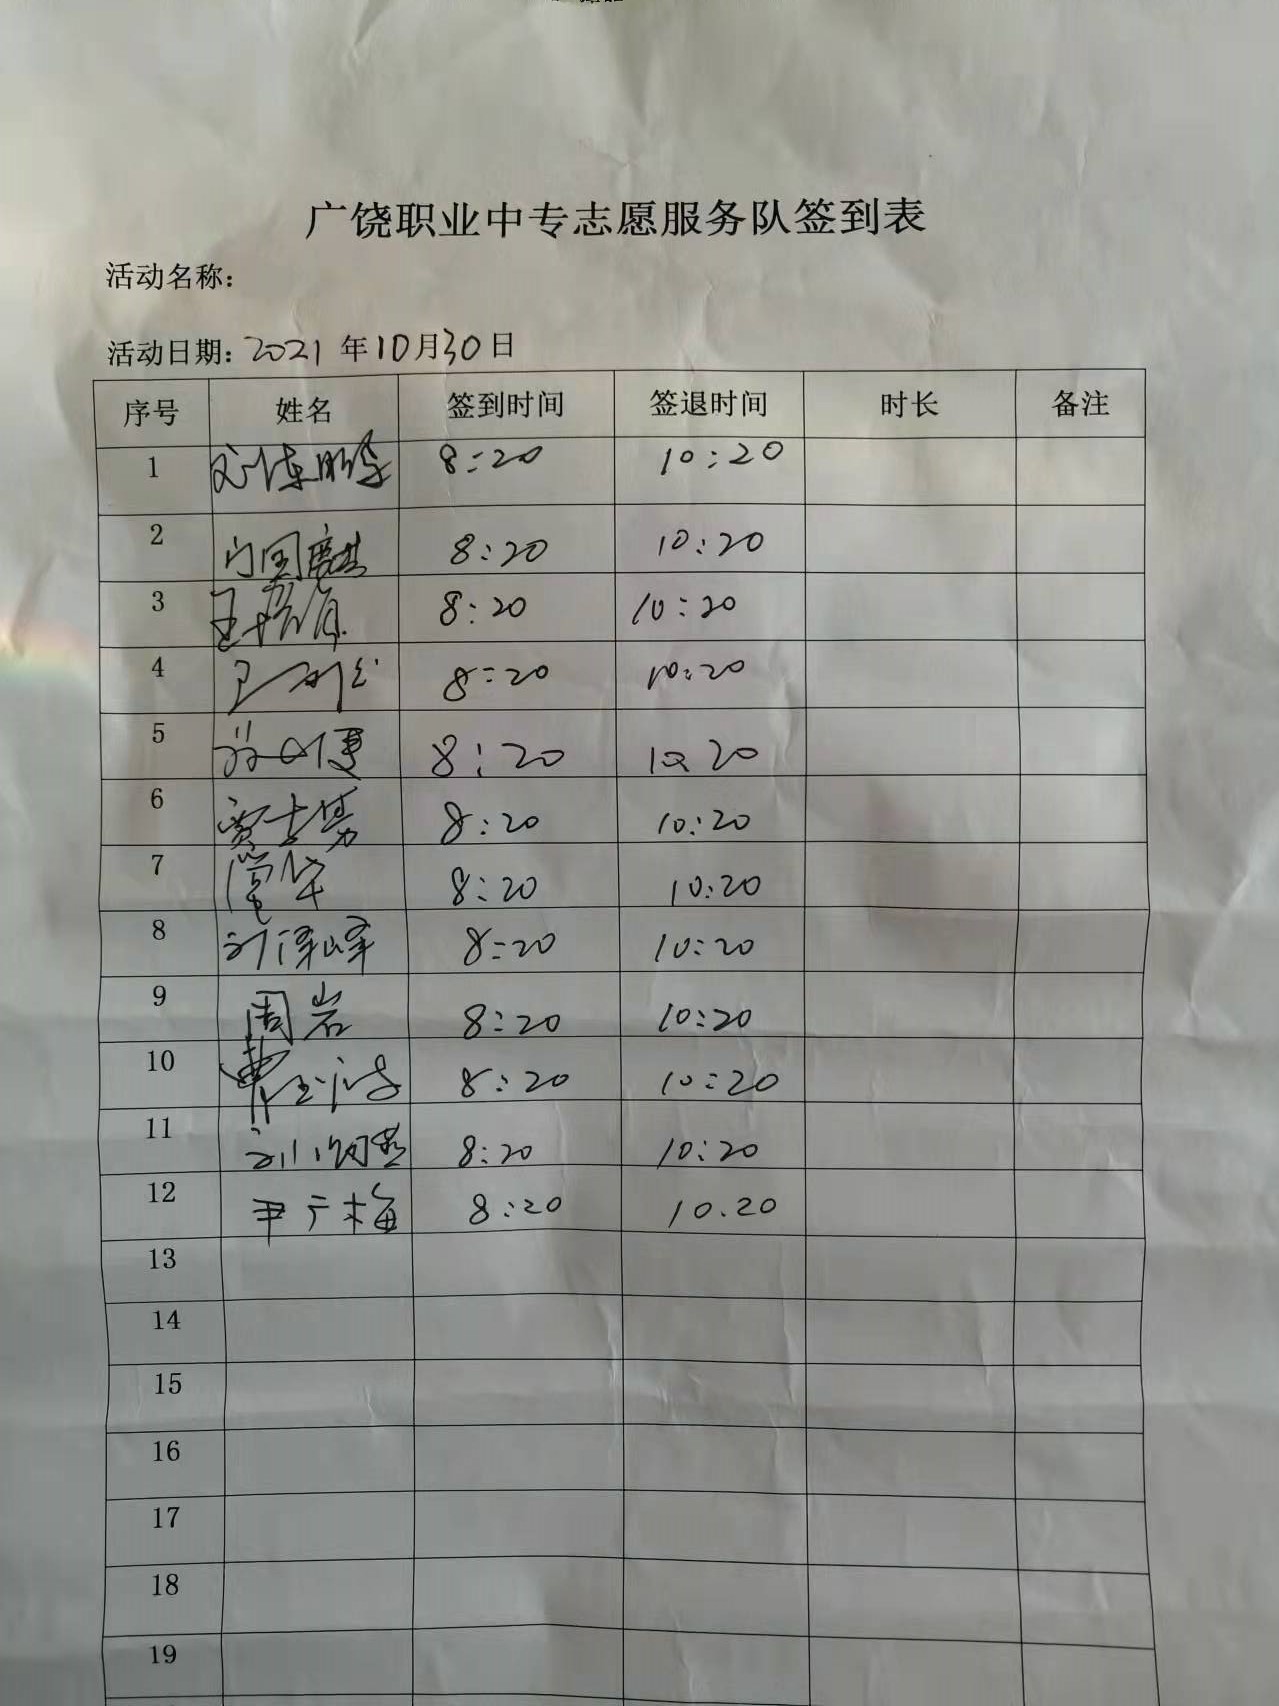 广饶职业中专志愿服务队签到表
活动名称：
活动日期：2021年10月30日
序号 姓名 签到时间 签退时间 时长 备注
1 8:20 10:20
2 8:20 10:20
3 8:20 10:20
4 8:20 10:20
5 8:20 10:20
6 8:20 10:20
7 8:20 10:20
8 刘泽峰 8:20 10:20
9 周岩 8:20 10:20
10 8:20 10:20
11 8:20 10:20
12 尹广梅 8:20 10.20
13
14
15
16
17
18
19